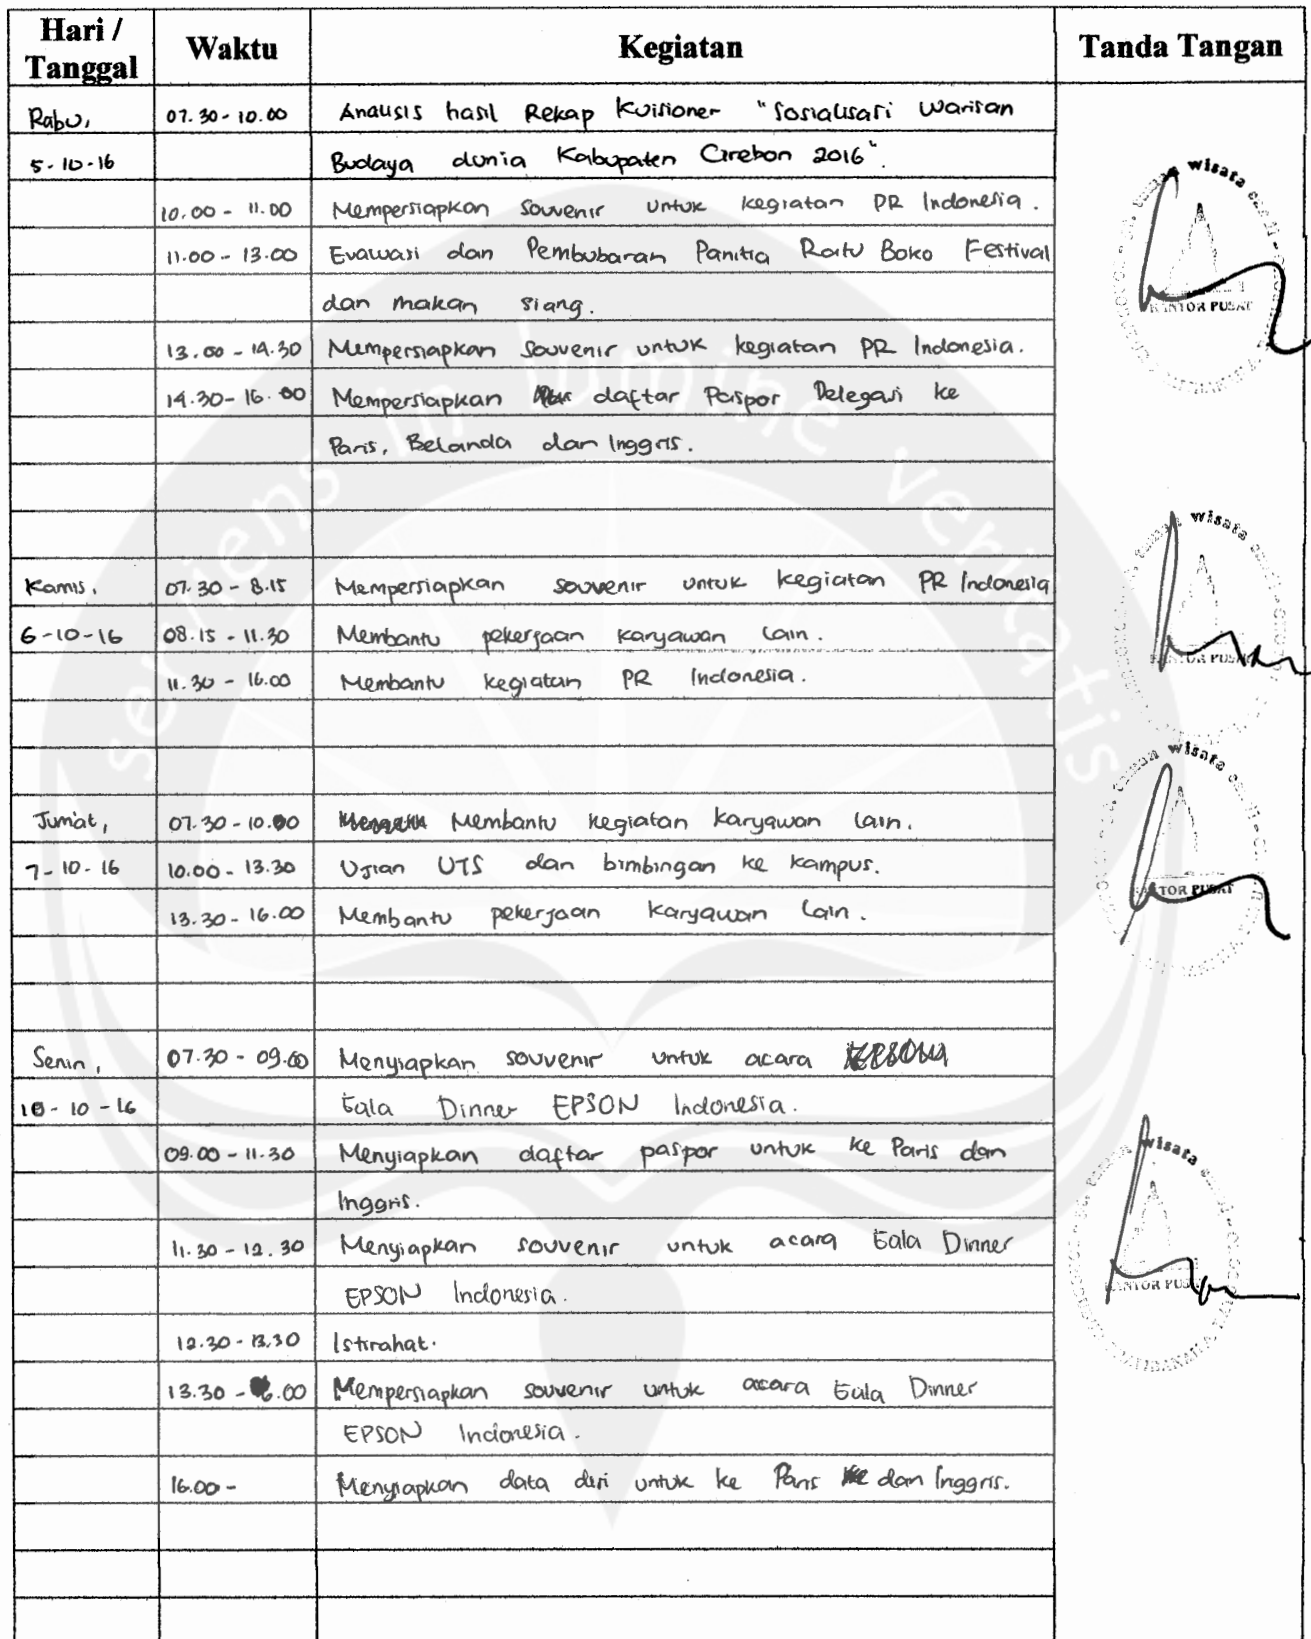 Hari / Tanggal Waktu Kegiatan Tanda Tangan
Rabu, 07.30 - 10.00 Analisis hasil Rekap Kuisioner "Sosialisasi Warisan
5-10-16 Budaya dunia Kabupaten Cirebon 2016".
10.00 - 11.00 Mempersiapkan souvenir untuk kegiatan PR Indonesia.
11.00 - 13.00 Evaluasi dan Pembubaran Panitia Ratu Boko Festival
dan makan siang.
13.00 - 14.30 Mempersiapkan Souvenir untuk kegiatan PR Indonesia.
14.30 - 16.00 Mempersiapkan daftar Paspor Delegasi ke
Paris, Belanda dan Inggris.
Kamis, 07.30 - 8.15 Mempersiapkan souvenir untuk kegiatan PR Indonesia
6-10-16 08.15 - 11.30 Membantu pekerjaan karyawan lain.
11.30 - 16.00 Membantu kegiatan PR Indonesia.
Jum'at, 07.30 - 10.00 Membantu kegiatan karyawan lain.
7-10-16 10.00 - 13.30 Ujian UTS dan bimbingan ke kampus.
13.30 - 16.00 Membantu pekerjaan karyawan lain.
Senin, 07.30 - 09.00 Menyiapkan souvenir untuk acara
10-10-16 Gala Dinner EPSON Indonesia.
09.00 - 11.30 Menyiapkan daftar paspor untuk ke Paris dan
Inggris.
11.30 - 12.30 Menyiapkan souvenir untuk acara Gala Dinner
EPSON Indonesia.
12.30 - 13.30 Istirahat.
13.30 - 16.00 Mempersiapkan souvenir untuk acara Gala Dinner
EPSON Indonesia.
16.00 - Menyiapkan data diri untuk ke Paris dan Inggris.
serviens in lumine veritatis
wisata
KANTOR PUSAT
wisata
KANTOR PUSAT
taman wisata
KANTOR PUSAT
wisata
KANTOR PUSAT